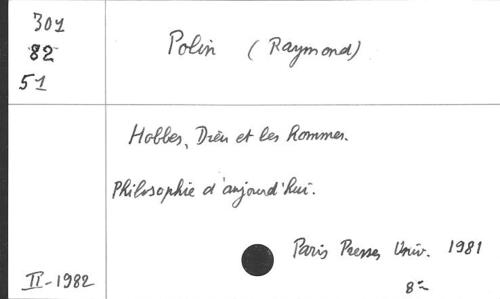 301
82
51
Polin (Raymond)
Hobbes, Dieu et les hommes.
Philosophie d'aujourd'hui.
Paris Presses Univ. 1981
8º
II-1982